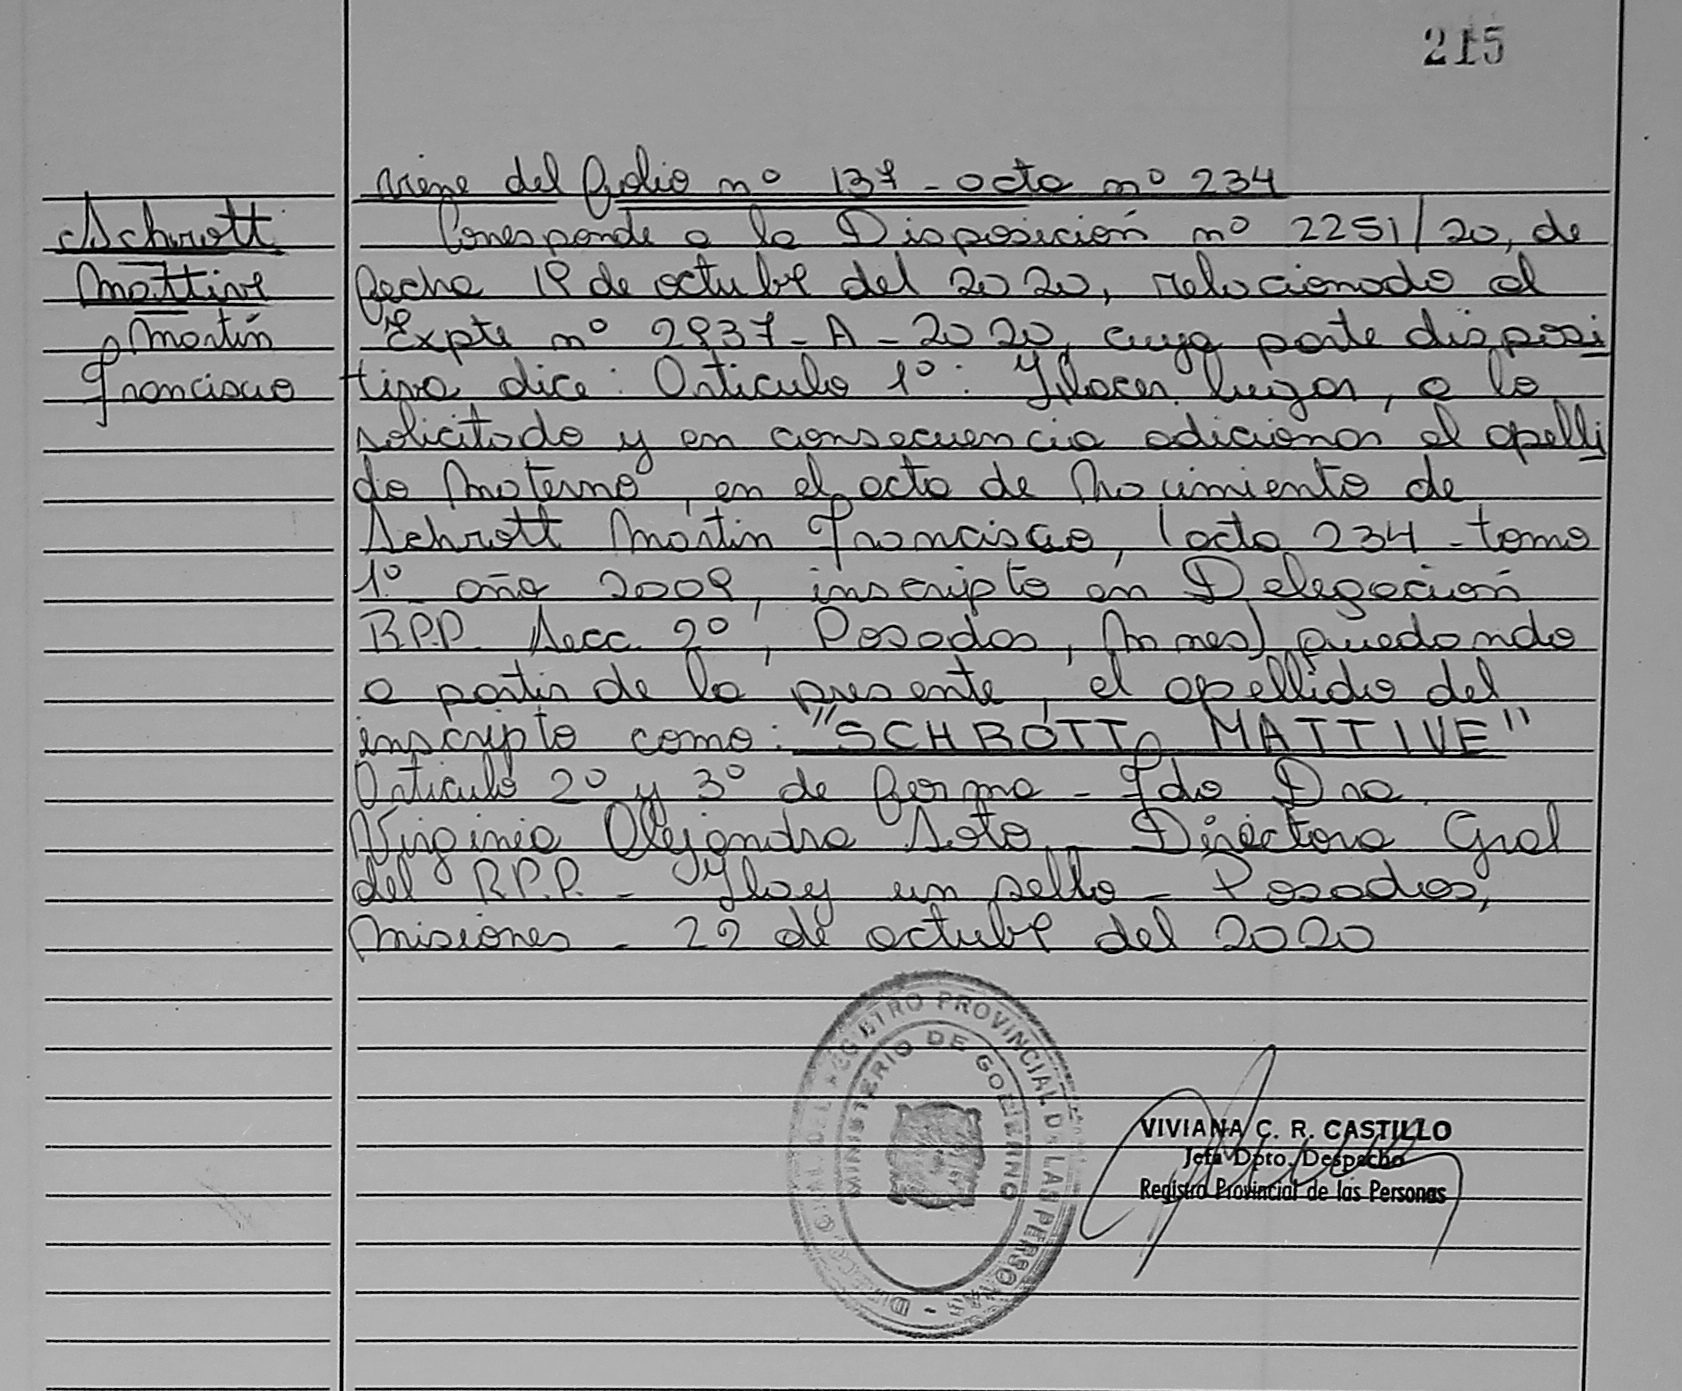 215
viene del folio nº 137 - acta nº 234
Schrott
Mattive
Martín
Francisco
Corresponde a la Disposición nº 2251/20, de
fecha 19 de octubre del 2020, relacionado al
Expte nº 2937-A-2020, cuya parte disposi
tiva dice: Articulo 1º: Hacer lugar, a lo
solicitado y en consecuencia adicionar el apelli
do Materno, en el acta de Nacimiento de
Schrott Martin Francisco, (acta 234 - tomo
1º año 2009, inscripto en Delegación
R.P.P. Secc 2º, Posadas, Mnes) quedando
a partir de la presente, el apellido del
inscripto como: "SCHROTT MATTIVE"
Articulo 2º y 3º de forma - Fdo Dra
Virginia Alejandra Soto - Directora Gral
del R.P.P. - Hay un sello - Posadas,
Misiones - 22 de octubre del 2020
REGISTRO PROVINCIAL DE LAS PERSONAS
MINISTERIO DE GOBIERNO
VIVIANA C. R. CASTILLO
Jefa Dpto. Despacho
Registro Provincial de las Personas